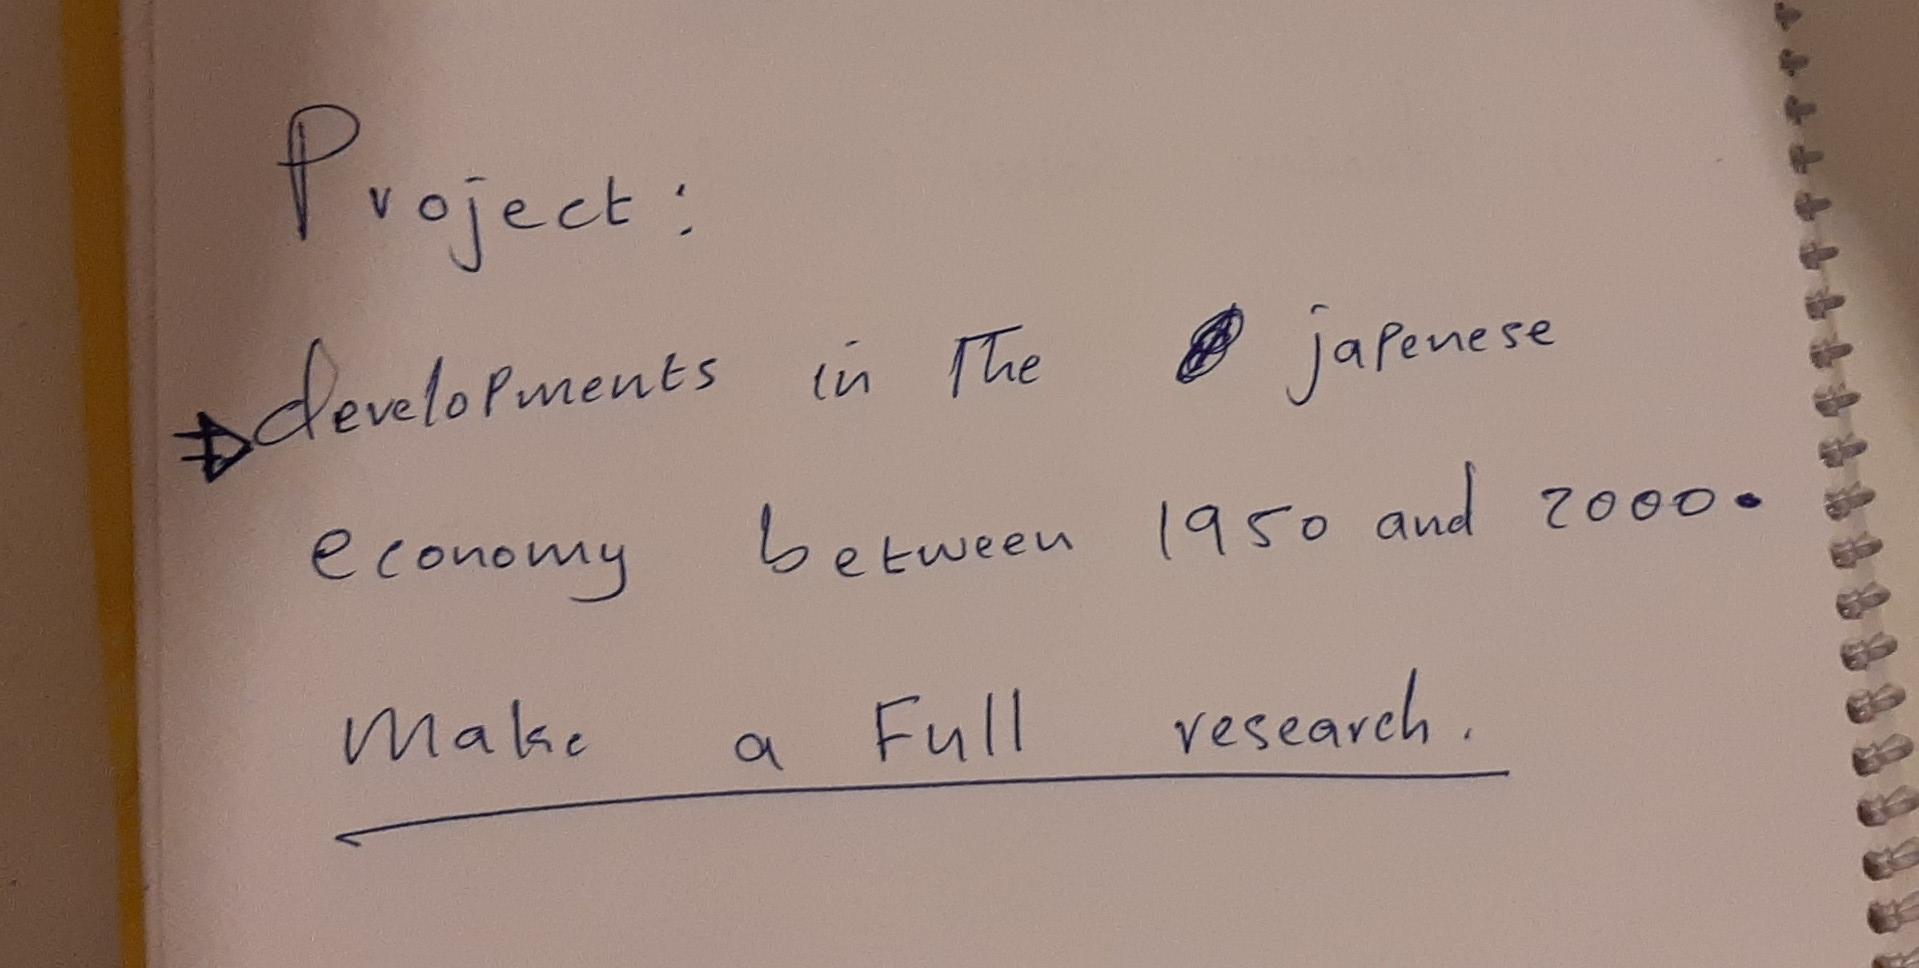 Project:
developments in The japenese
economy between 1950 and 2000.
Make a Full research.